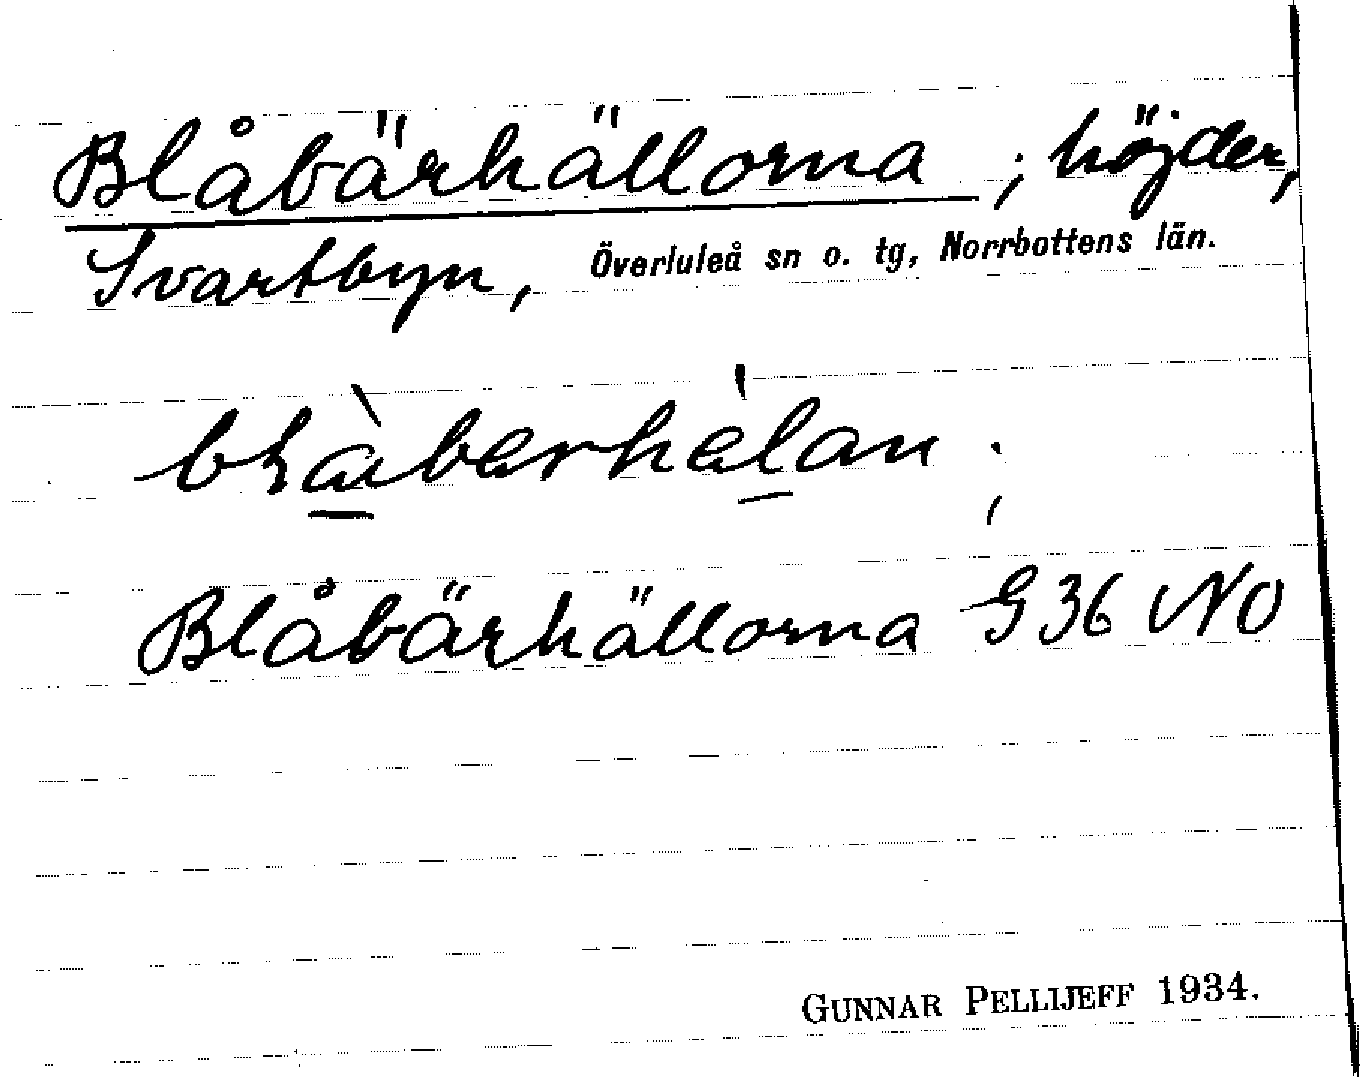 Blåbärhällorna ; höjder,
Svartbyn, Överluleå sn o. tg, Norrbottens län.
Blåbärhällorna G 36 NO
GUNNAR PELLIJEFF 1934.